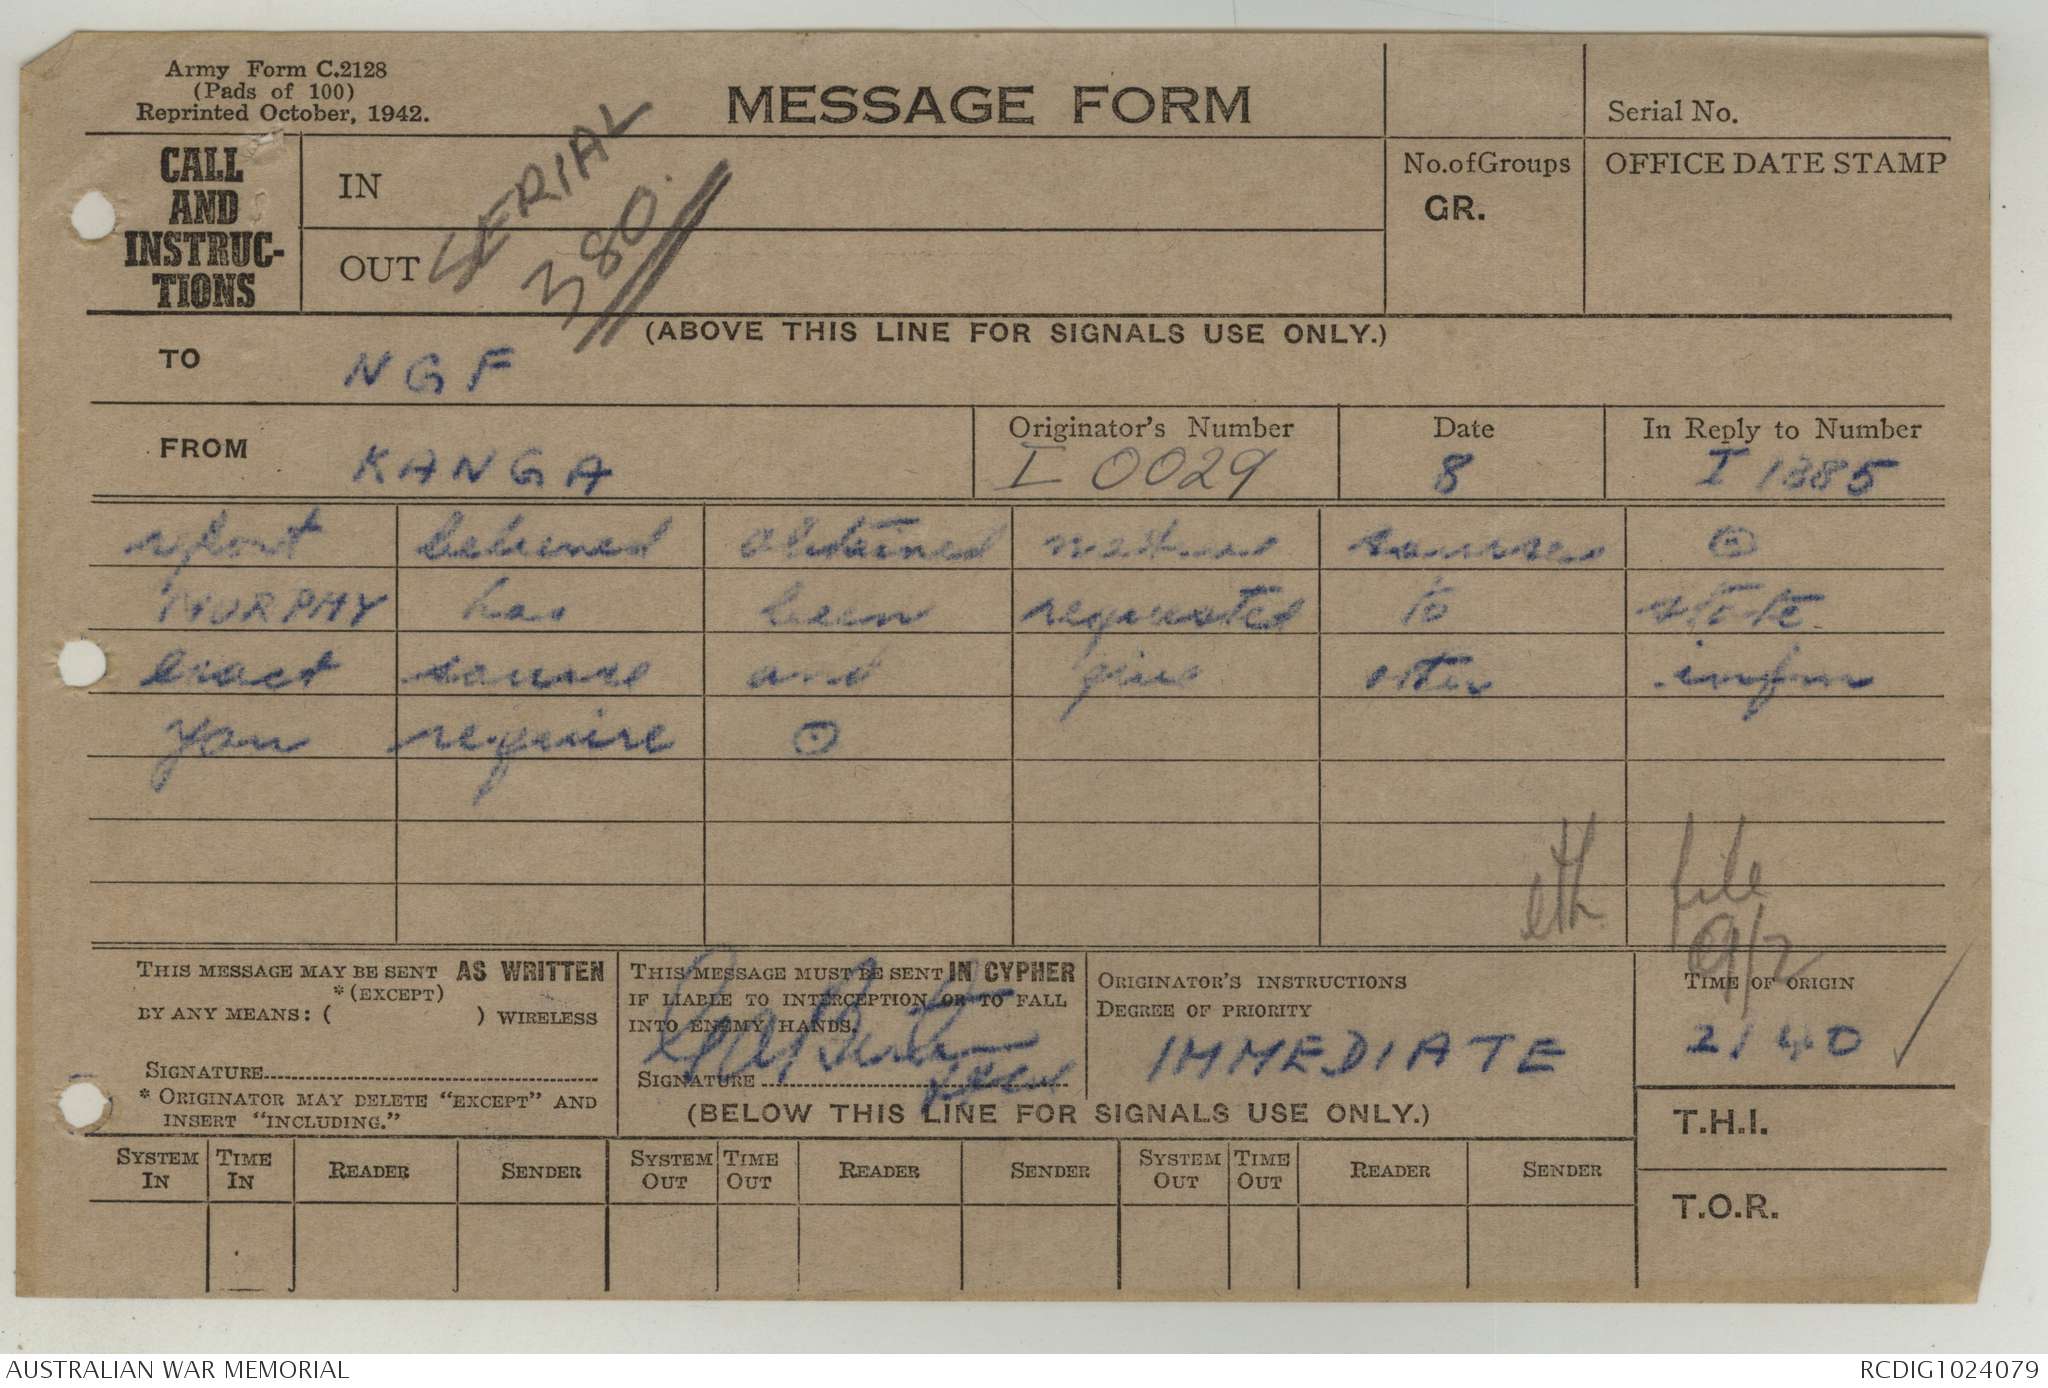 Army Form C.2128
(Pads of 100)
Reprinted October, 1942.
MESSAGE FORM
Serial No.
CALL AND INSTRUC-TIONS
IN
OUT
SERIAL
380.
No. of Groups
GR.
OFFICE DATE STAMP
(ABOVE THIS LINE FOR SIGNALS USE ONLY.)
TO NGF
FROM KANGA
Originator's Number
I 0029
Date
8
In Reply to Number
I 1385
report believed obtained native sources ⊙
MURPHY has been requested to state
exact source and give other infm
you require ⊙
file
9/2
THIS MESSAGE MAY BE SENT AS WRITTEN
*(EXCEPT)
BY ANY MEANS: ( ) WIRELESS
SIGNATURE
* ORIGINATOR MAY DELETE "EXCEPT" AND
INSERT "INCLUDING."
THIS MESSAGE MUST BE SENT IN CYPHER
IF LIABLE TO INTERCEPTION OR TO FALL
INTO ENEMY HANDS.
SIGNATURE
ORIGINATOR'S INSTRUCTIONS
DEGREE OF PRIORITY
IMMEDIATE
TIME OF ORIGIN
2140
(BELOW THIS LINE FOR SIGNALS USE ONLY.)
T.H.I.
T.O.R.
SYSTEM IN TIME IN READER SENDER SYSTEM OUT TIME OUT READER SENDER SYSTEM OUT TIME OUT READER SENDER
AUSTRALIAN WAR MEMORIAL
RCDIG1024079